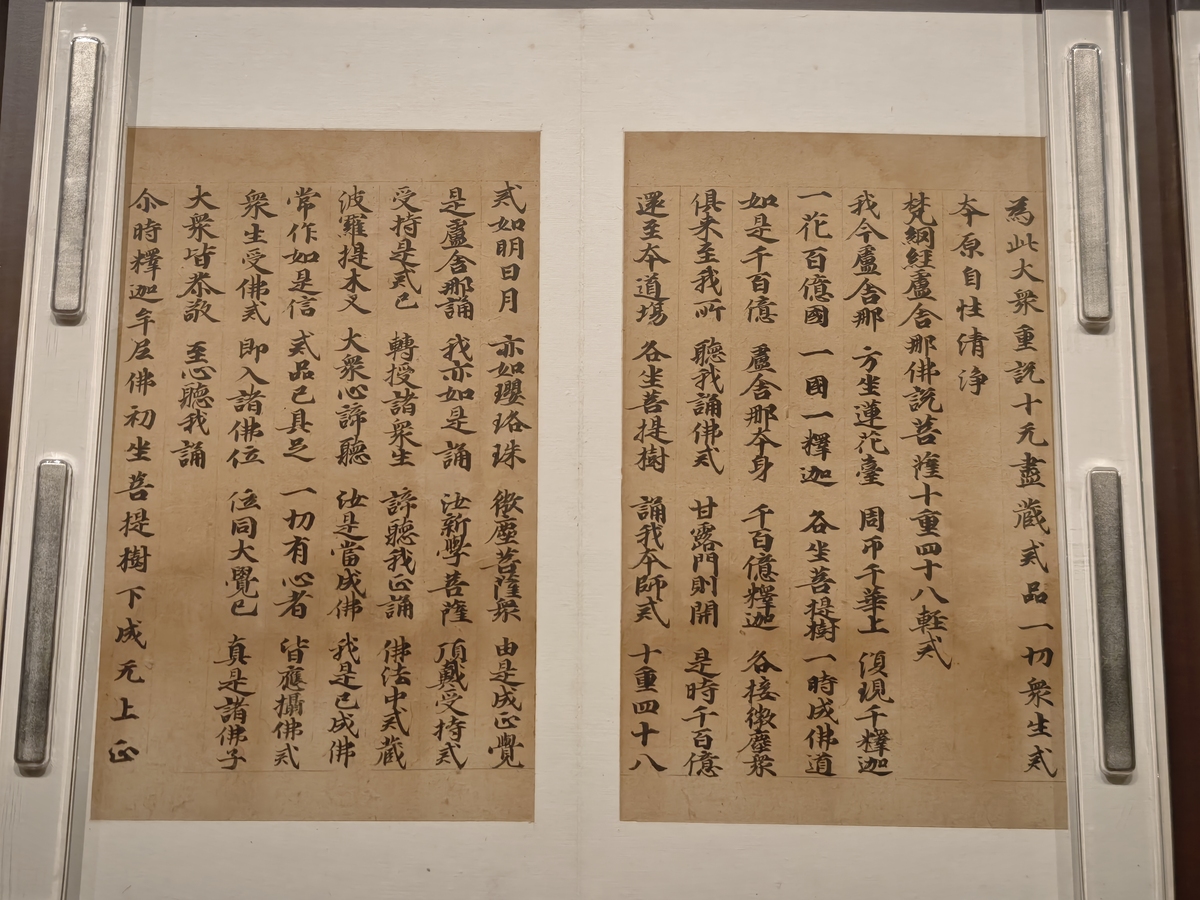 為此大衆重説十无盡蔵戒品一切衆生戒
本原自性清浄
梵綱經盧舎那佛説菩薩十重四十八軽戒
我今盧舎那 方坐蓮花臺 周帀千華上 須現千釋迦
一花百億國 一國一釋迦 各坐菩提樹 一時成佛道
如是千百億 盧舎那本身 千百億釋迦 各接微塵衆
俱来至我所 聽我誦佛戒 甘露門則開 是時千百億
還至本道場 各坐菩提樹 誦我本師戒 十重四十八
戒如明日月 亦如瓔珞珠 微塵菩薩衆 由是成正覺
是盧舎那誦 我亦如是誦 汝新學菩薩 頂戴受持戒
受持是戒已 轉授諸衆生 諦聽我正誦 佛法中戒蔵
波羅提木叉 大衆心諦聽 汝是當成佛 我是已成佛
常作如是信 戒品已具足 一切有心者 皆應攝佛戒
衆生受佛戒 即入諸佛位 位同大覺已 真是諸佛子
大衆皆恭敬 至心聽我誦
尒時釋迦牟尼佛初坐菩提樹下成无上正